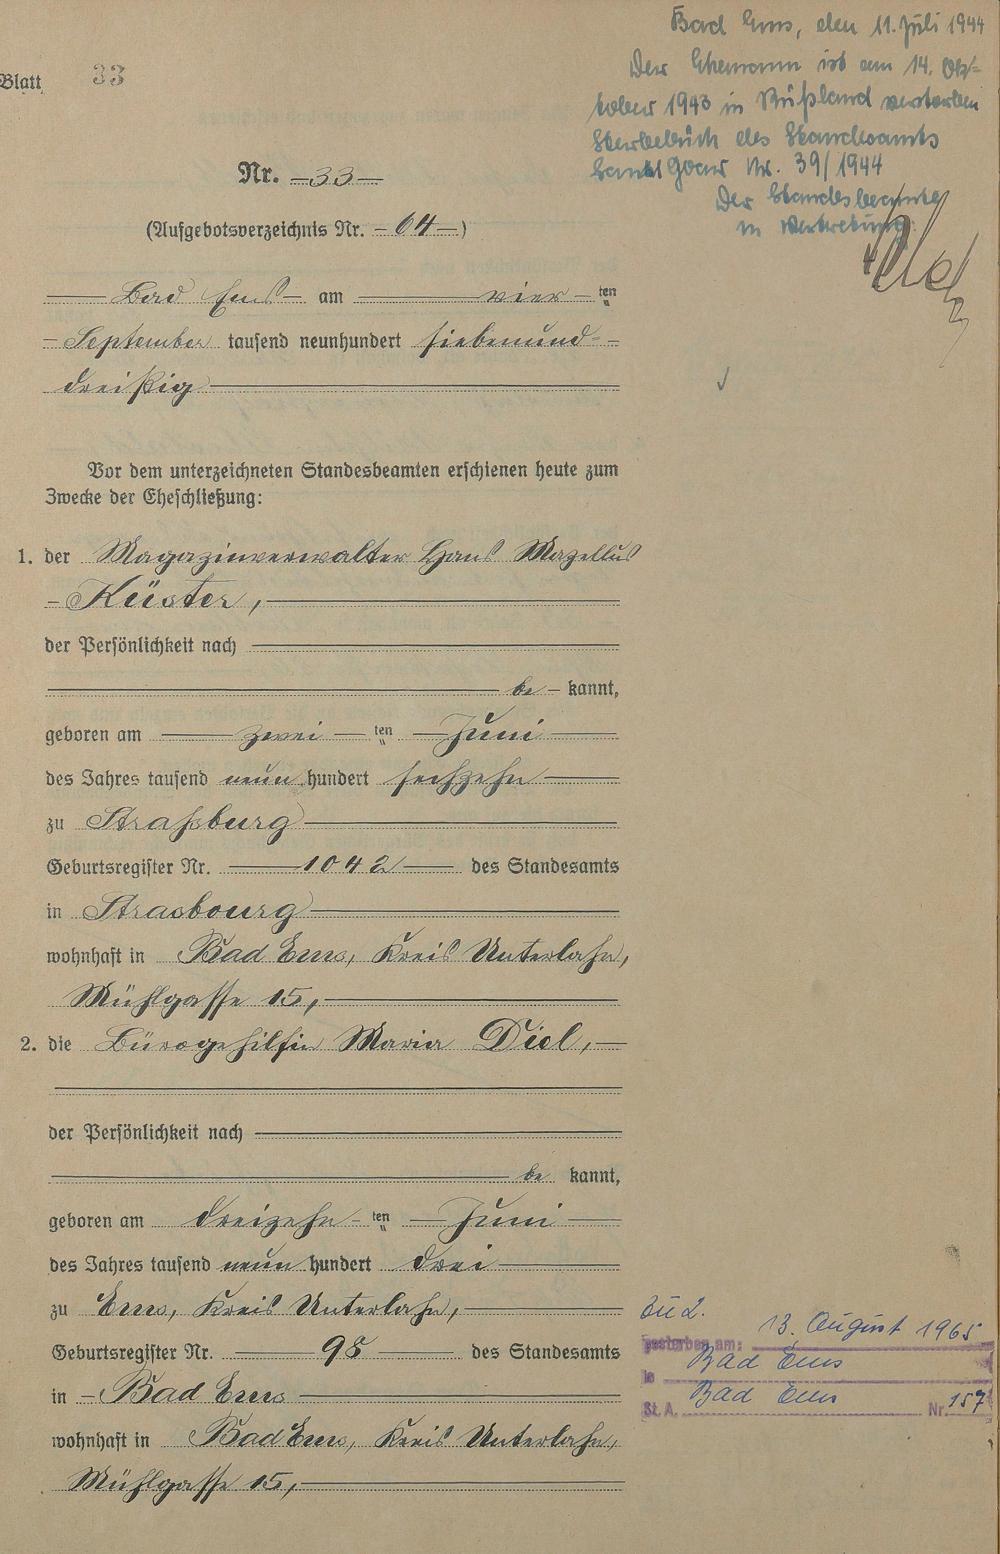 Bad Ems, den 11. Juli 1944
Der Ehemann ist am 14. Ok-
tober 1943 in Rußland verstorben
Sterbebuch des Standesamts
Sankt Goar Nr. 39/1944
Der Standesbeamte
in Vertretung:
Blatt 33
Nr. 33
(Aufgebotsverzeichnis Nr. 64)
Bad Ems am vier ten
September tausend neunhundert siebenund-
dreißig
Vor dem unterzeichneten Standesbeamten erschienen heute zum
Zwecke der Eheschließung:
1. der Magazinverwalter Hans Mazellus
Küster,
der Persönlichkeit nach
be kannt,
geboren am zwei ten Juni
des Jahres tausend neun hundert sechzehn
zu Straßburg
Geburtsregister Nr. 1042 des Standesamts
in Strasbourg
wohnhaft in Bad Ems, Kreis Unterlahn,
Mühlgasse 15,
2. die Bürogehilfin Maria Diel,
der Persönlichkeit nach
be kannt,
geboren am dreizehn ten Juni
des Jahres tausend neun hundert drei
zu Ems, Kreis Unterlahn,
Geburtsregister Nr. 98 des Standesamts
in Bad Ems
wohnhaft in Bad Ems, Kreis Unterlahn,
Mühlgasse 15,
zu 2.
gestorben am: 13. August 1965
in Bad Ems
St. A. Bad Ems Nr. 157